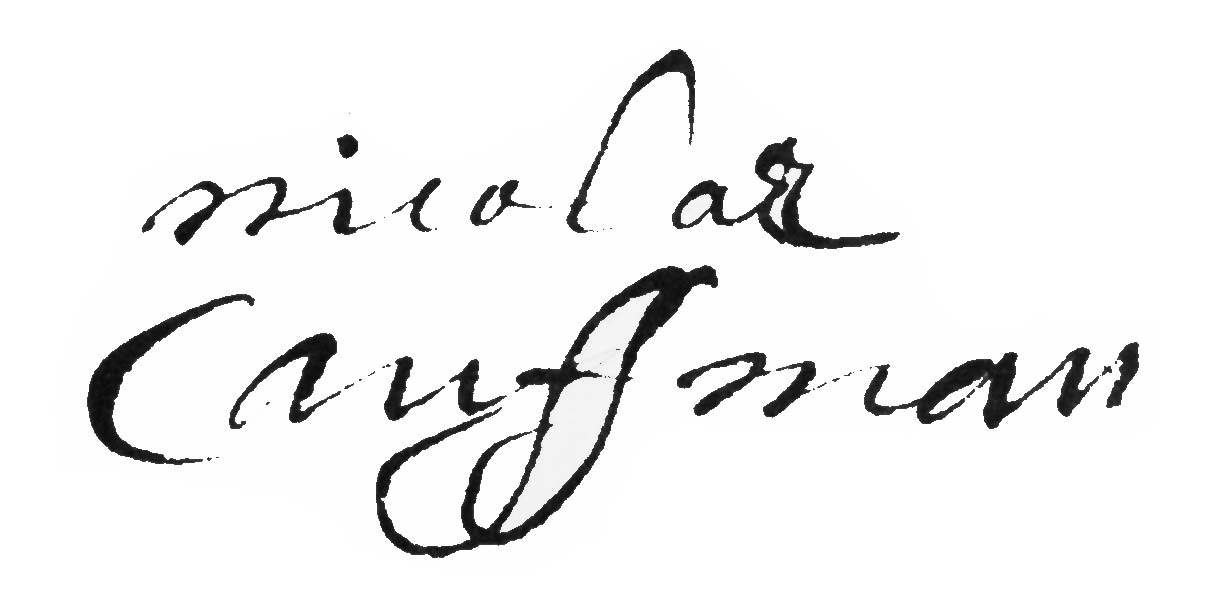 nicolas
Caufman